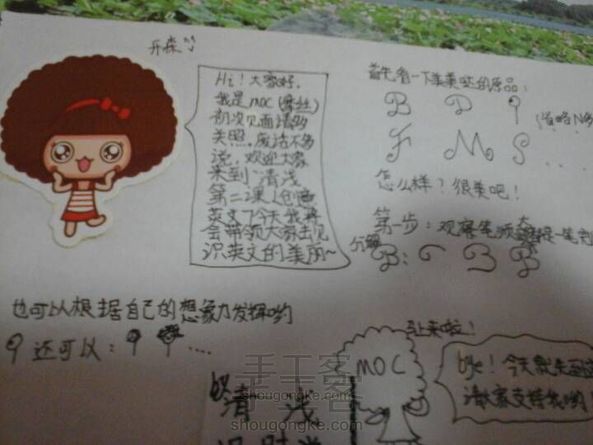 开森
Hi！大家好，
我是moc(雾丝)
初次见面请多
关照…废话不多
说，欢迎大家
来到“清浅
第二课”创意
英文，今天我将
会带领大家去见
识英文的美丽~
首先看一下美美哒的原品：
B D 9 (省略N多
F M S …
怎么样？很美吧！
第一步：观察笔顺
是一笔
分解
B：
也可以根据自己的想象力发挥哟
9 还可以：9 …
moc
来啦！
bye！今天就来到这
请大家支持我哟！
清 浅
手工客
shougongke.com